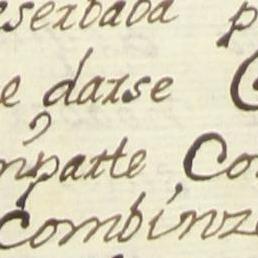 esexbaba p
e daxse C
mpaxte Co
Combinz